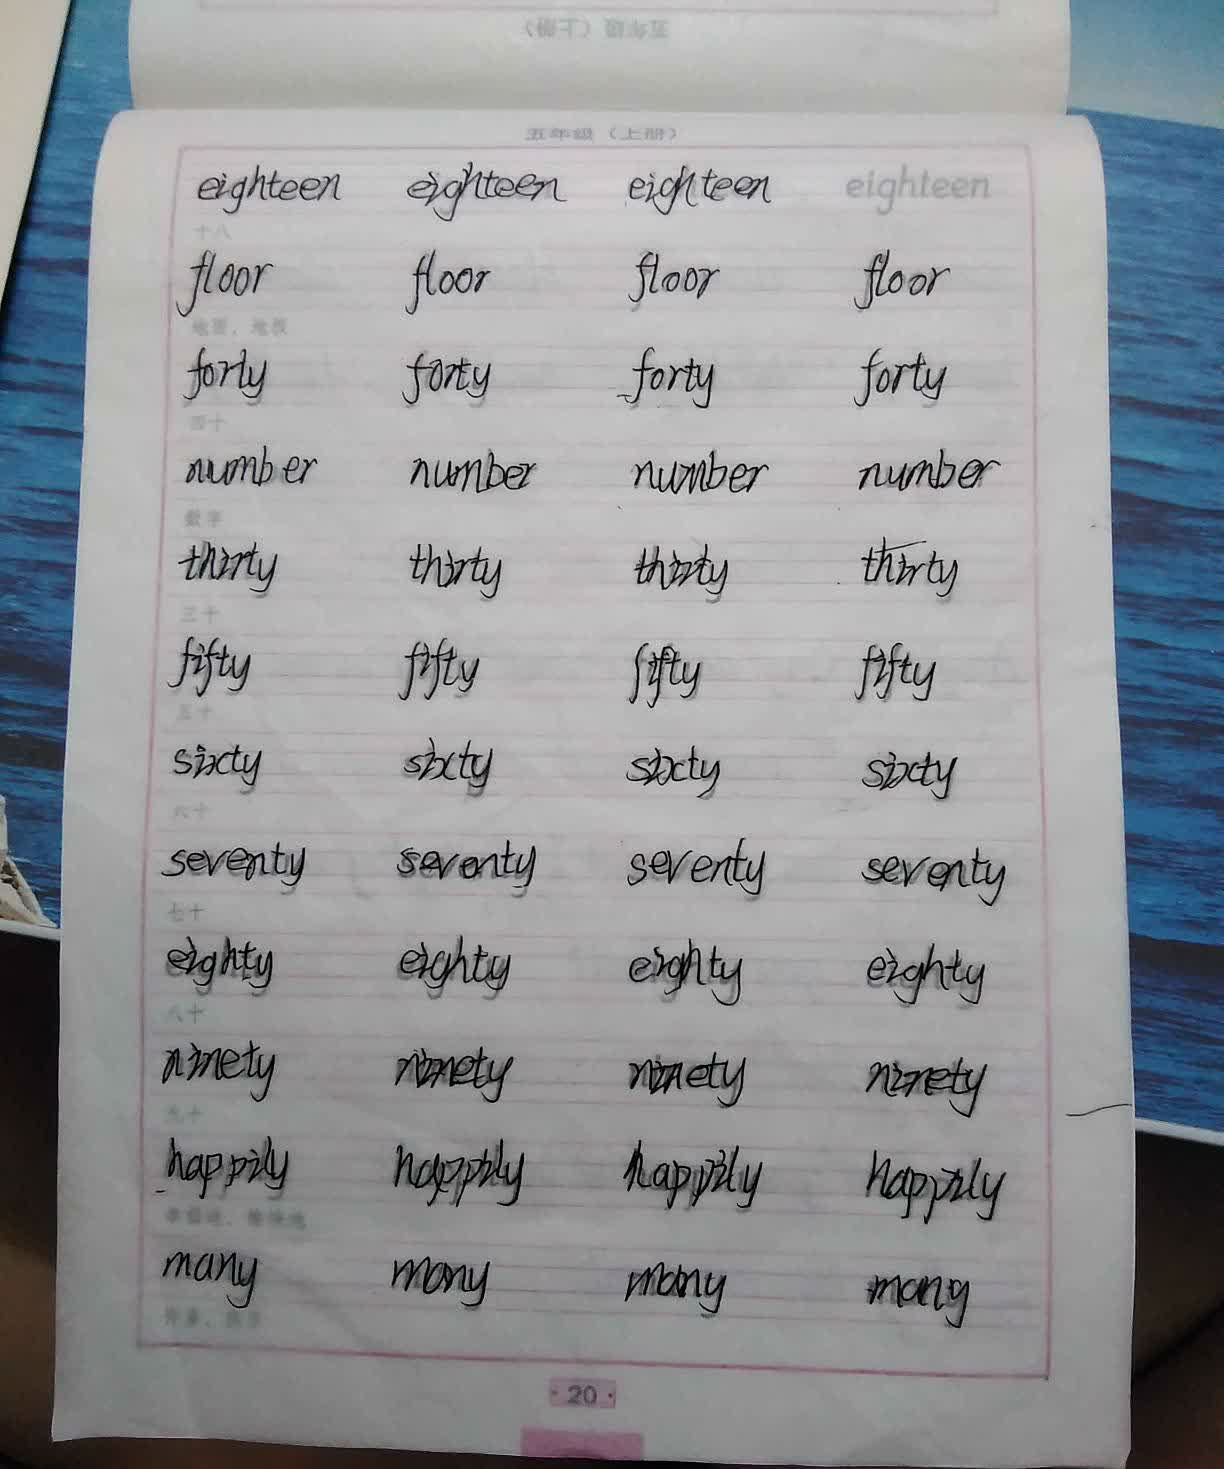 五年级（上册）
eighteen eighteen eighteen eighteen
十八
floor floor floor floor
地面，地板
forty forty forty forty
四十
number number number number
数字
thirty thirty thirty thirty
三十
fifty fifty fifty fifty
五十
sixty sixty sixty sixty
六十
seventy seventy seventy seventy
七十
eighty eighty eighty eighty
八十
ninety ninety ninety ninety
九十
happily happily happily happily
many many many many
·20·